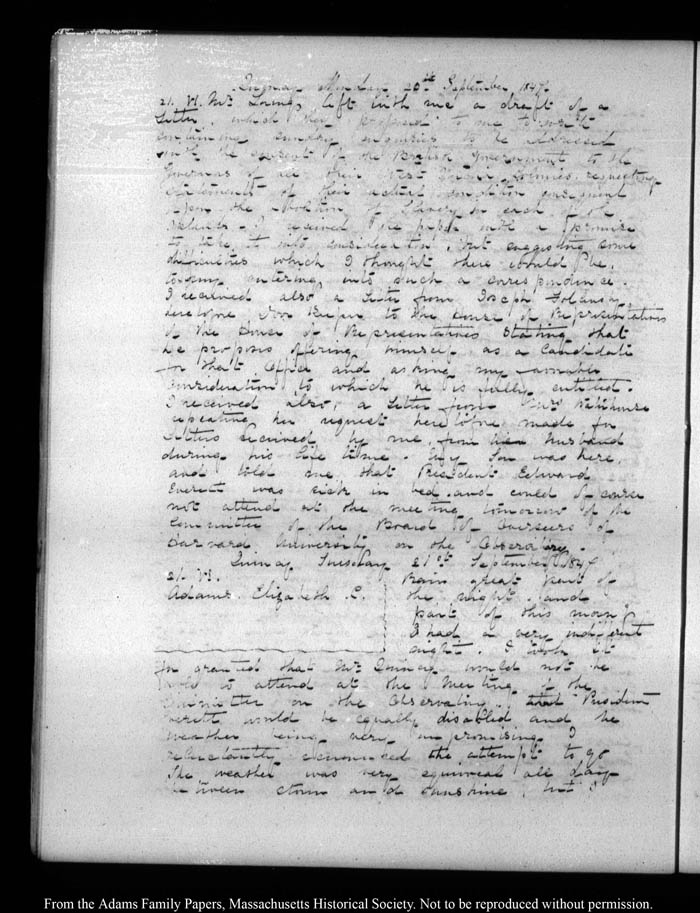 Quincy Monday 20th September 1847.
21. VI. Mr Loring left with me a draft of a
Letter, which they proposed to me to write
containing sundry enquiries to be addressed
with the consent of the British Government to the
Governors of all their West India Colonies, respecting
Statements of their actual condition consequent
upon the abolition of Slavery in each of the
Islands. I received the paper with a promise
to take it into consideration, but suggesting some
difficulties which I thought there would be,
to my entering into such a correspondence.
I received also a Letter from Joseph
heretofore Door Keeper to the House of Representatives
of the House of Representatives stating that
he proposes offering himself as a Candidate
for that Office and asking my favorable
Consideration to which he is fully entitled.
I received also, a Letter from Mrs
repeating her request heretofore made for
Letters received by me, from her husband
during his life time. My Son was here
and told me that President Edward
Everett was sick in bed and could of course
not attend at the meeting tomorrow of the
Committee of the Board of Overseers of
Harvard University on the Observatory.
Quincy Tuesday 21st September 1847
21. VI.
Adams. Elizabeth C.
Rain great part of
the night, and
part of this morng
I had a very indifferent
night. I took it
for granted that Mr Quincy would not be
able to attend at the Meeting of the
Committee on the Observatory, that President
Everett would be equally disabled and the
weather being very unpromising I
reluctantly renounced the attempt to go
The weather was very equivocal all day
between storm and sunshine, but I
From the Adams Family Papers, Massachusetts Historical Society. Not to be reproduced without permission.